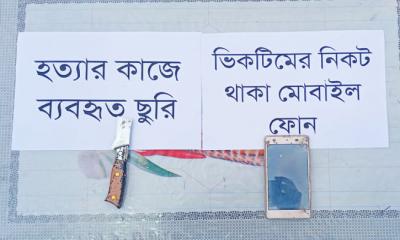 হত্যার কাজে
ব্যবহৃত ছুরি
ভিকটিমের নিকট
থাকা মোবাইল
ফোন